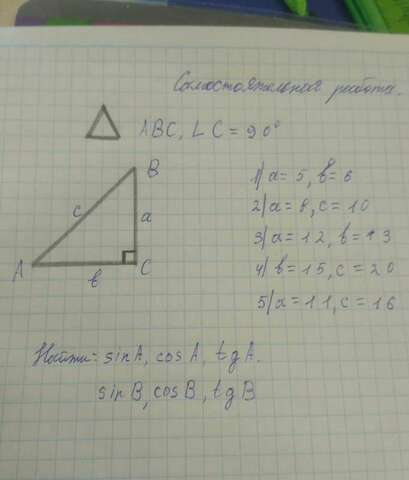 Самостоятельная работа.
△ ABC, ∠ C = 90°
B
c
a
A
C
b
1) a = 5, b = 6
2) a = 8, c = 10
3) a = 12, b = 13
4) b = 15, c = 20
5) a = 11, c = 16
Найти: sin A, cos A, tg A.
sin B, cos B, tg B